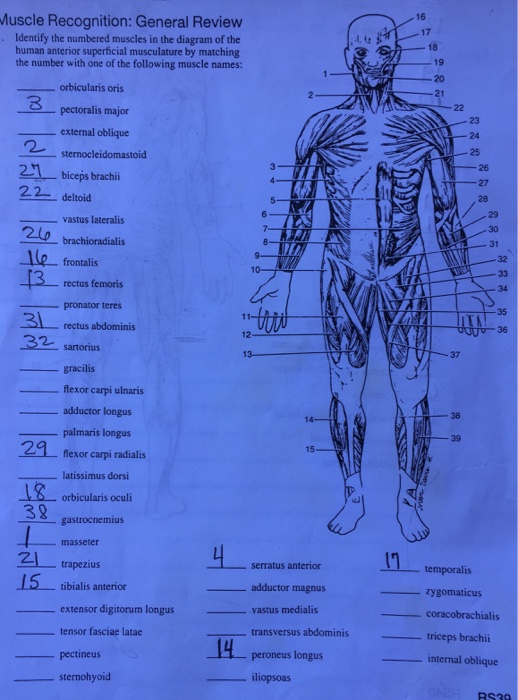 Muscle Recognition: General Review
Identify the numbered muscles in the diagram of the
human anterior superficial musculature by matching
the number with one of the following muscle names:
orbicularis oris
3 pectoralis major
external oblique
2 sternocleidomastoid
27 biceps brachii
22 deltoid
vastus lateralis
26 brachioradialis
16 frontalis
13 rectus femoris
pronator teres
31 rectus abdominis
32 sartorius
gracilis
flexor carpi ulnaris
adductor longus
palmaris longus
29 flexor carpi radialis
latissimus dorsi
18 orbicularis oculi
38 gastrocnemius
1 masseter
21 trapezius
15 tibialis anterior
extensor digitorum longus
tensor fasciae latae
pectineus
sternohyoid
4 serratus anterior
adductor magnus
vastus medialis
transversus abdominis
14 peroneus longus
iliopsoas
17 temporalis
zygomaticus
coracobrachialis
triceps brachii
internal oblique
1
2
3
4
5
6
7
8
9
10
11
12
13
14
15
16
17
18
19
20
21
22
23
24
25
26
27
28
29
30
31
32
33
34
35
36
37
38
39
RS39